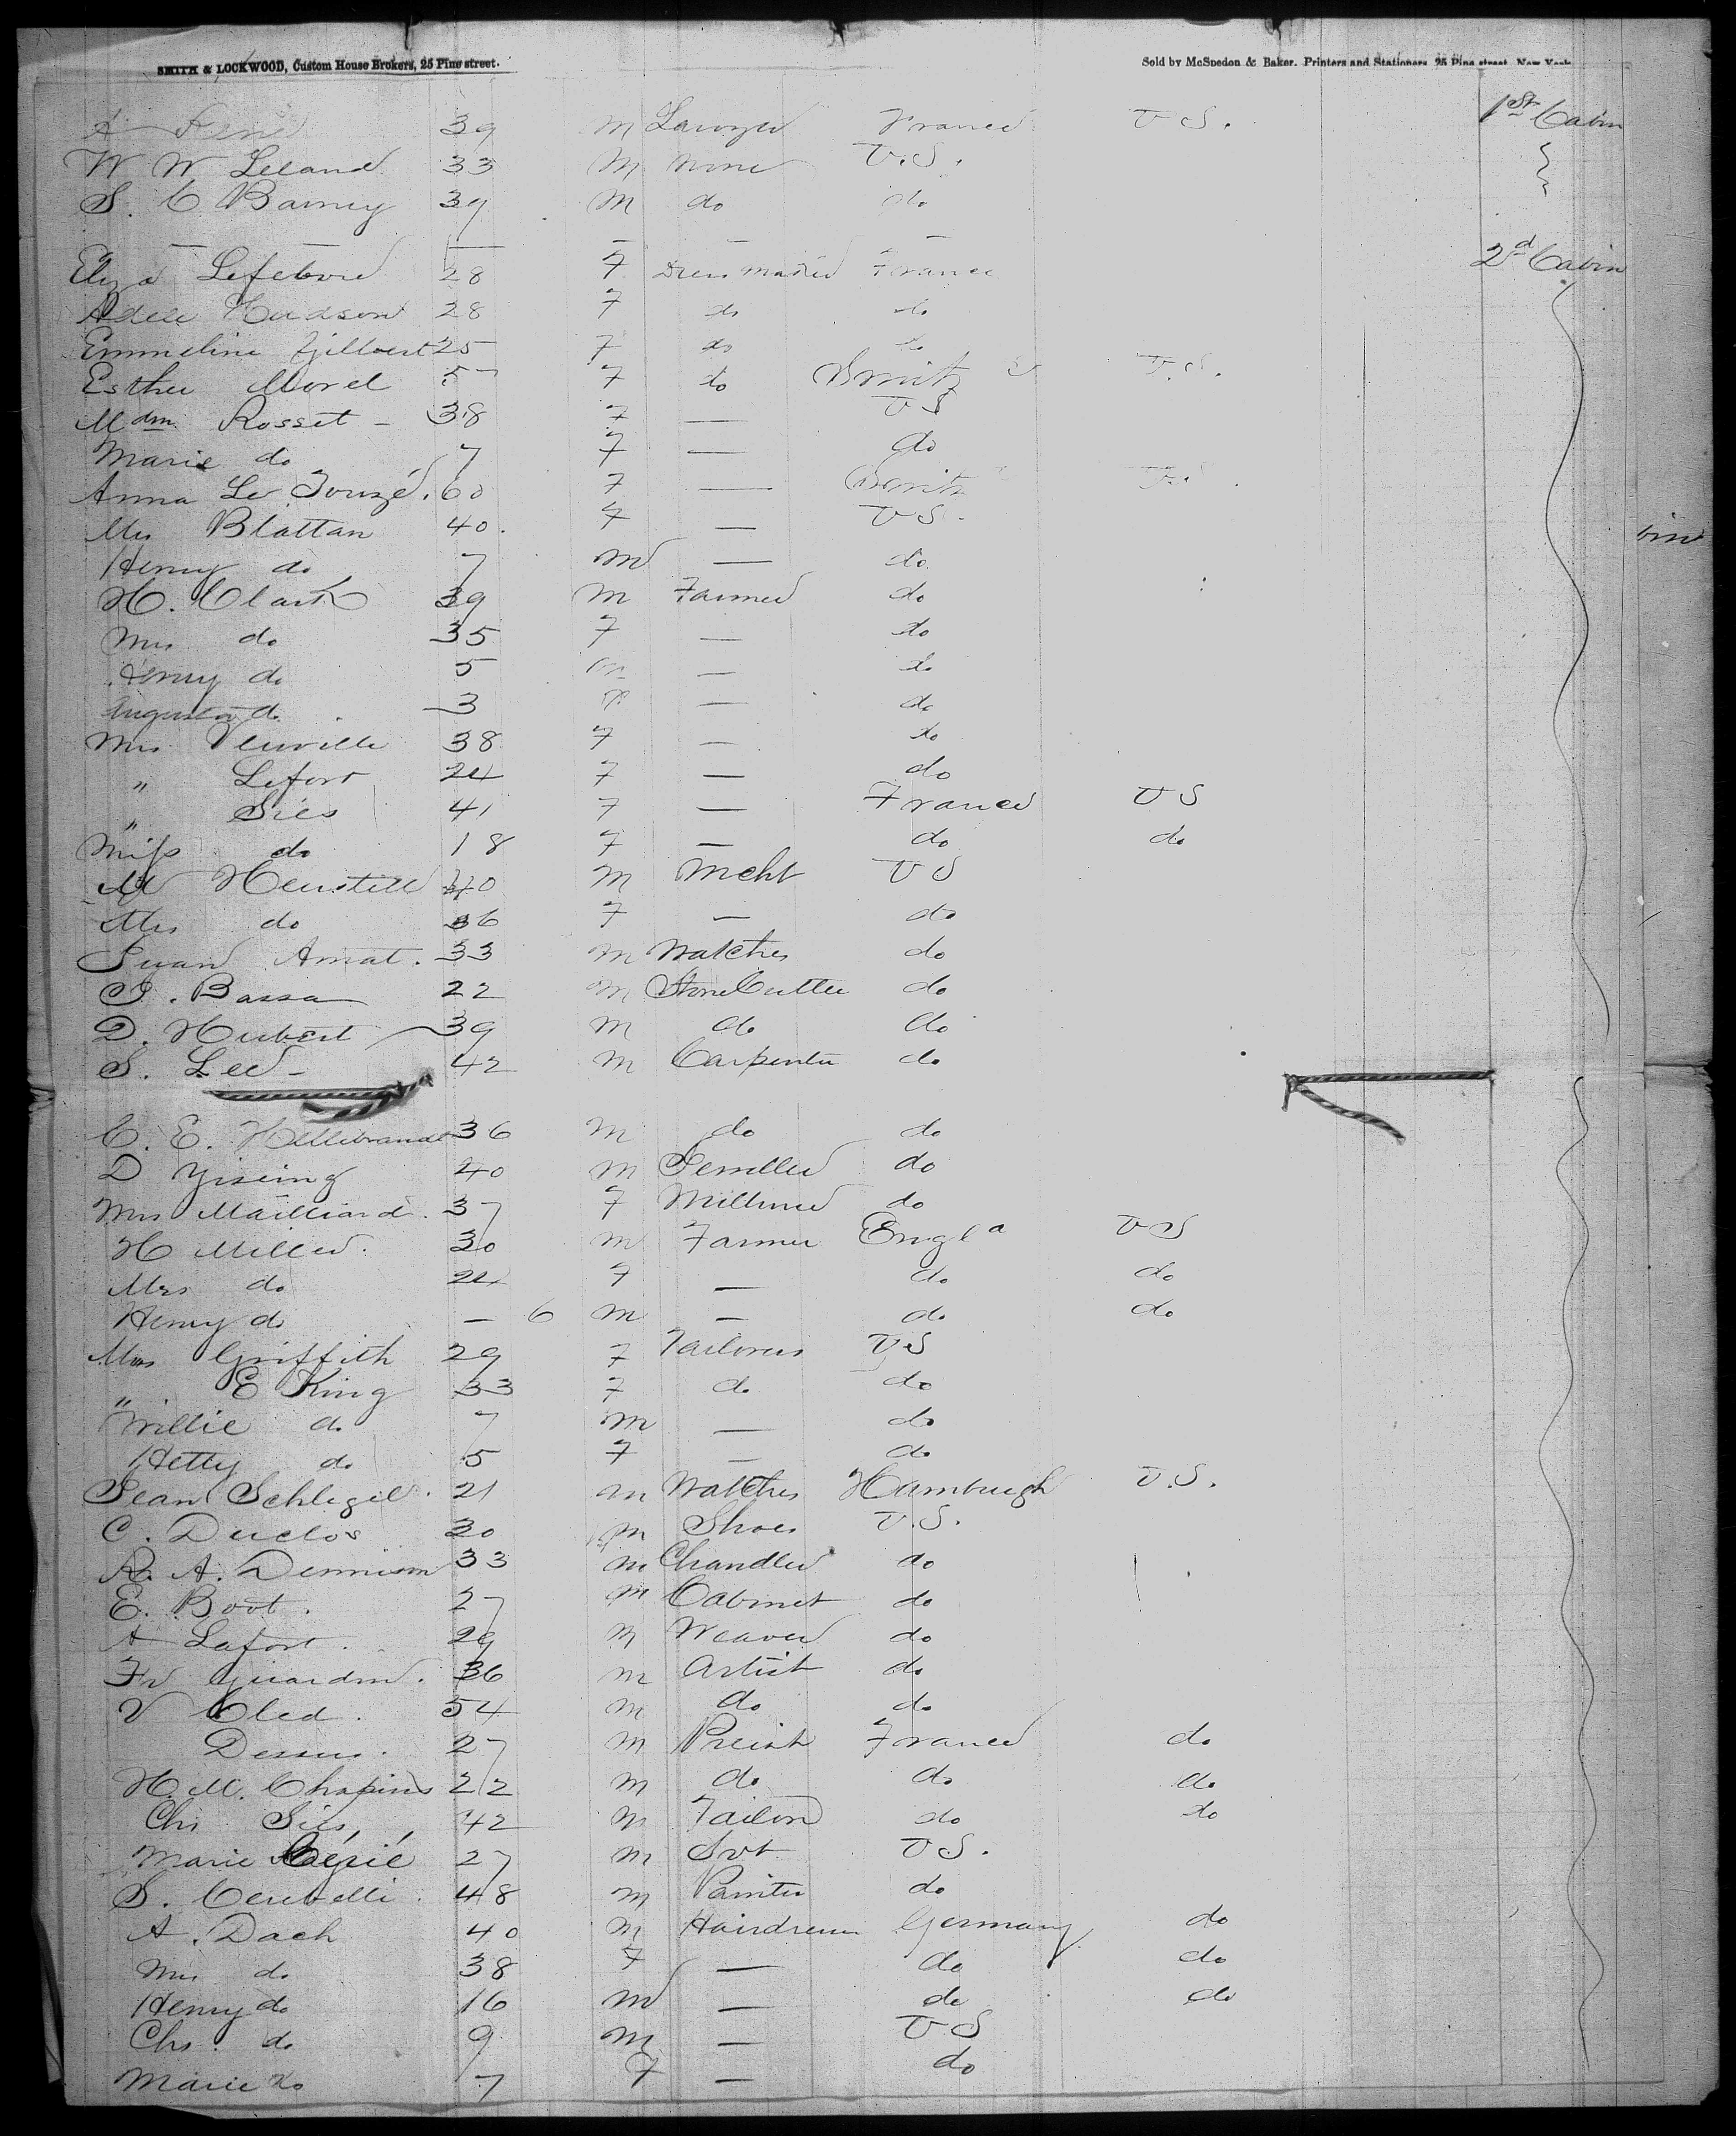 SMITH & LOCKWOOD, Custom House Brokers, 25 Pine street. Sold by McSpedon & Baker, Printers and Stationers, 25 Pine street, New York
A 39 m Lawyer France U S. 1st Cabin
W W Leland 33 m None U.S.
S. C Barney 39 m do do
2d Cabin
Eliza Lefebvre 28 F Dressmaker France
Adele Hudson 28 F do do
Emmeline Gilbert 25 F do do
Esther Morel F do U.S.
Mdm Rosset - 38 F — U S
Marie do 7 F — do
Anna Le 60 F —
Mrs Blattan 40. F — U S.
Henry do 7 m — do
H. Clark 39 m Farmer do
Mrs do 35 F — do
Henry do 5 m — do
Augusta do 3 — do
Mrs Vieuville 38 F — do
" Lefort 24 F — do
" Siès 41 F — France U S
Miss do 18 F — do do
40 m Mcht U S
Mrs do 36 F — do
Juan Amat. 33 m Watches do
J. Bassa 22 m Stone Cutter do
D. Hubert 39 m do do
S. Lee - 42 m Carpenter do
C. E. Hillebrandt 36 m do do
D 40 m Jeweller do
Mrs Mailliard. 37 F Milliner do
H Miller. 30 m Farmer Engl a U S
Mrs do 24 F — do do
Henry do — 6 m — do do
Mrs Griffith 29 F Tailoress U S
" E King 33 F do do
Willie do 7 m — do
Hetty do 5 F — do
Jean Schlegel. 21 m Watches Hamburgh U.S.
C. Duclos 30 m Shoes U.S.
R. A. Dennison 33 m Chandler do
E. Boot. 27 m Cabinet do
A Lafort. 29 m Weaver do
Fr Girardin. 36 m Artist do
V Cled. 54 m do do
27 m Preist France do
H. M. Chapins 22 m do do do
Chs Siès 42 m Tailor do do
Marie 27 m Svt U S.
S. Cerubelli. 48 m Painter do
A. Dach 40 m Hairdresser Germany do
Mrs do 38 F — do do
Henry do 16 m — do do
Chs. do 9 m — U S
Marie do 7 F — do